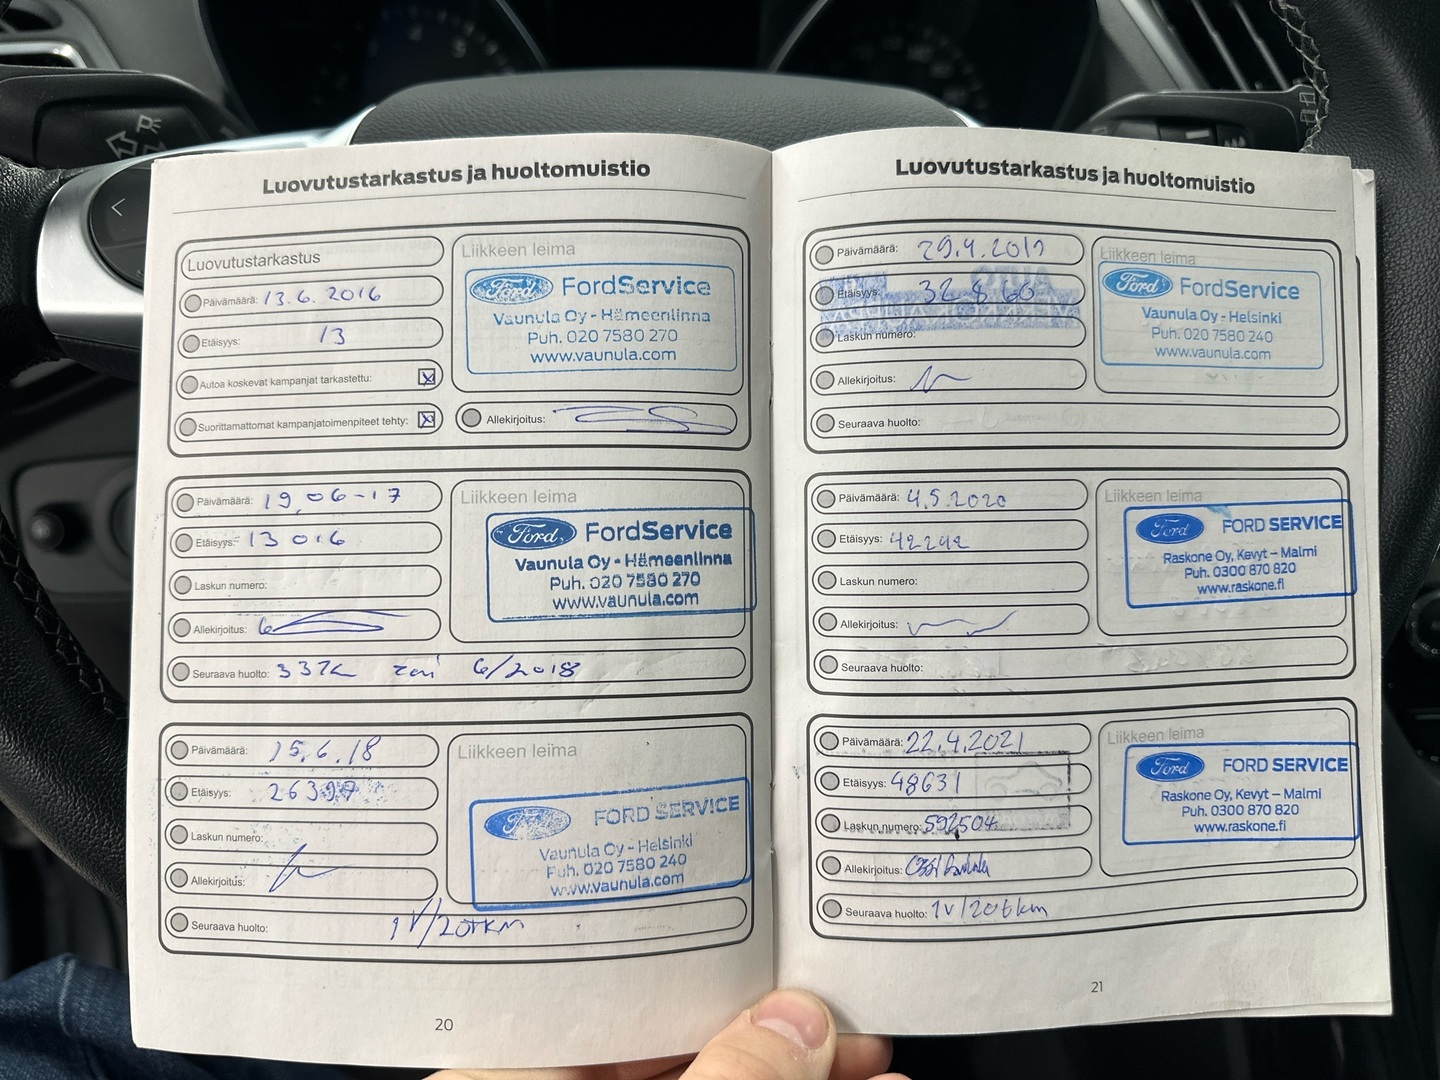 Luovutustarkastus ja huoltomuistio
Luovutustarkastus
Päivämäärä: 13.6.2016
Etäisyys: 13
Autoa koskevat kampanjat tarkastettu:
Suorittamattomat kampanjatoimenpiteet tehty:
Liikkeen leima
Ford FordService
Vaunula Oy - Hämeenlinna
Puh. 020 7580 270
www.vaunula.com
Allekirjoitus:
Päivämäärä: 19.06-17
Etäisyys: 13016
Laskun numero:
Allekirjoitus:
Liikkeen leima
Ford FordService
Vaunula Oy - Hämeenlinna
Puh. 020 7580 270
www.vaunula.com
Seuraava huolto: 6/2018
Päivämäärä: 15.6.18
Etäisyys:
Laskun numero:
Allekirjoitus:
Liikkeen leima
Ford FORD SERVICE
Vaunula Oy - Helsinki
Puh. 020 7580 240
www.vaunula.com
Seuraava huolto: 1V/20TKM
20
Luovutustarkastus ja huoltomuistio
Päivämäärä: 29.4.2019
Etäisyys: 32860
Laskun numero:
Allekirjoitus:
Liikkeen leima
Ford FordService
Vaunula Oy - Helsinki
Puh. 020 7580 240
www.vaunula.com
Seuraava huolto:
Päivämäärä: 4.5.2020
Etäisyys: 42242
Laskun numero:
Allekirjoitus:
Liikkeen leima
Ford FORD SERVICE
Raskone Oy, Kevyt – Malmi
Puh. 0300 870 820
www.raskone.fi
Seuraava huolto:
Päivämäärä: 22.4.2021
Etäisyys: 48631
Laskun numero: 592504
Allekirjoitus:
Liikkeen leima
Ford FORD SERVICE
Raskone Oy, Kevyt – Malmi
Puh. 0300 870 820
www.raskone.fi
Seuraava huolto: 1v/20tkm
21